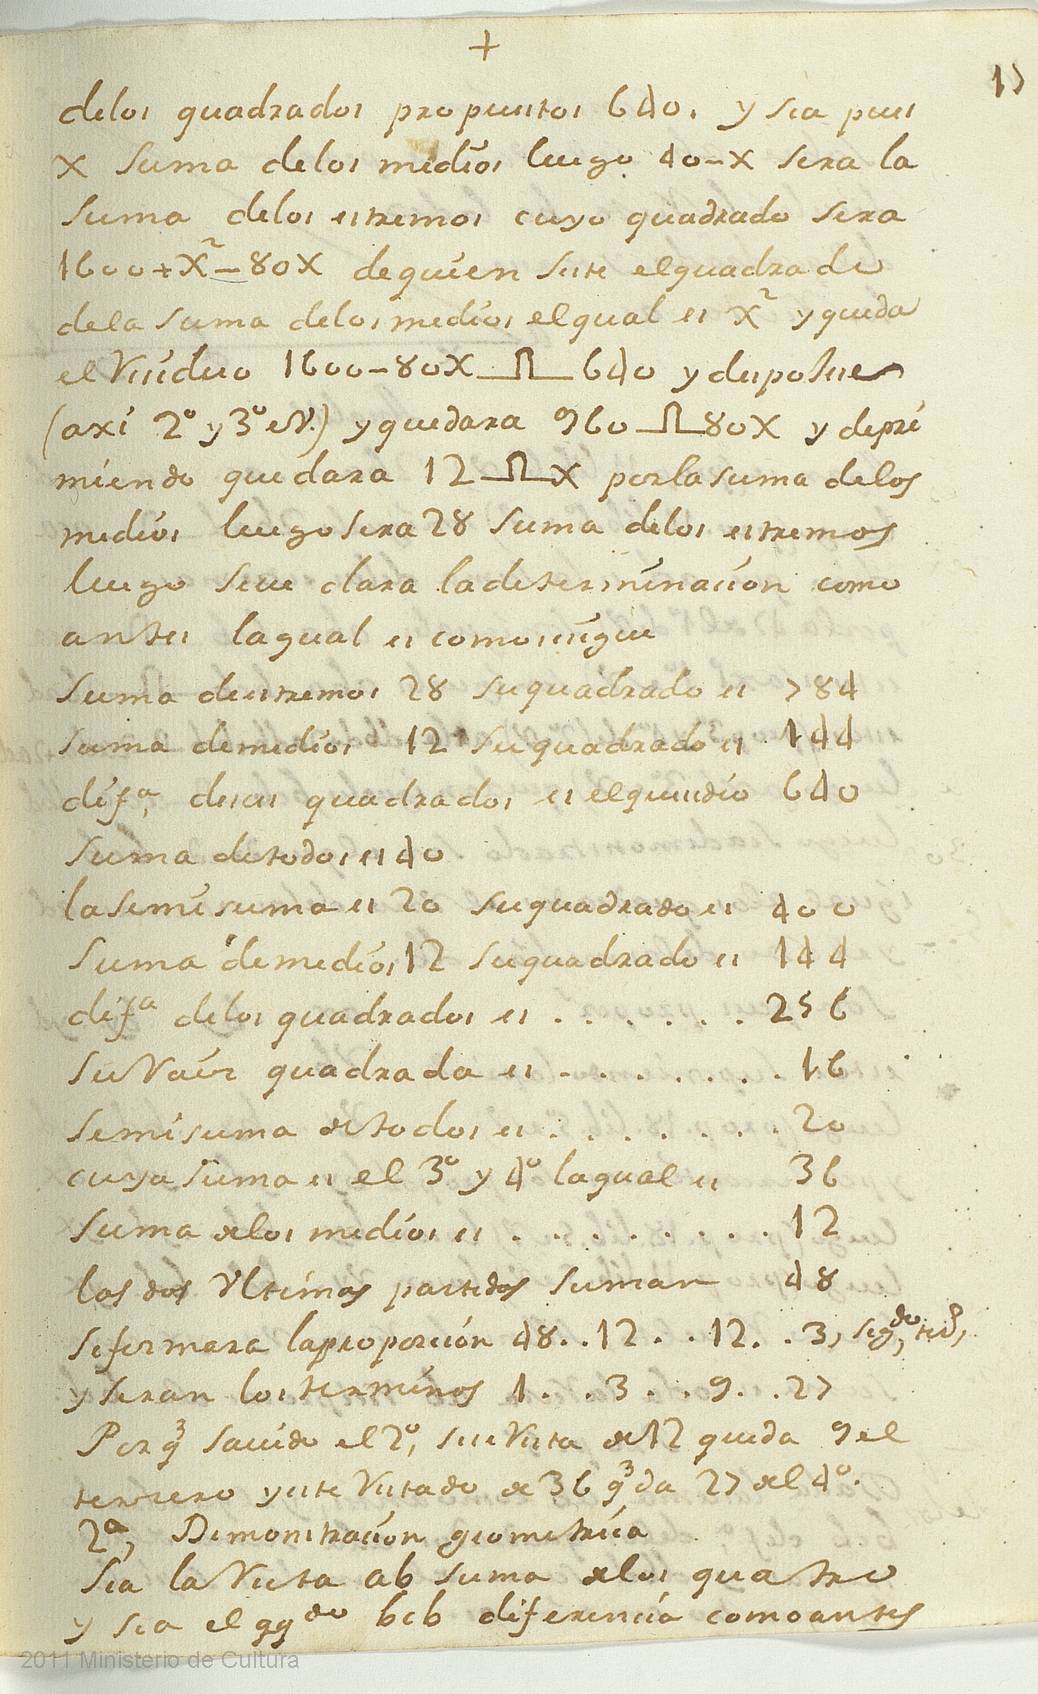 +
17
delos quadrados propuestos 640. y sea pues
x suma delos medios luego 40-x sera la
suma delos estremos cuyo quadrado sera
1600+x²-80x de quien reste el quadrado
dela suma delos medios el qual es x² y queda
el residuo 1600-80x 640 y
(axi 2º y 3º) y quedara 960 80x y depri
miendo quedara 12 x por la suma delos
medios luego sera 28 suma delos estremos
luego se ve clara la determinacion como
antes la qual es como se sigue
Suma de estremos 28 su quadrado es 784
suma de medios 12 su quadrado es 144
difª, desus quadrados es el quesedio 640
Suma de todos es 40
la semi suma es 20 su quadrado es 400
Suma de medios 12 su quadrado es 144
difª delos quadrados es . . . . . . . 256
Su Raiz quadrada es . . . . . . . . 16
Semisuma de todos es . . . . . . . . 20
cuya suma es el 3º y 4º la qual es 36
Suma delos medios es . . . . . . . . . 12
las dos Ultimas partidas suman 48
se formara la proporcion 48. . 12 . . 12. . 3,
y seran los terminos 1. . . 3 . . 9. . . 27
Porq³ savido el 2º, se resta de 12 queda 9 el
tercero y este restado de 36 q³da 27 del 4º.
2ª, Demonstracion geometrica
Sea la Recta ab suma delos quatro
y sea el qqᵈᵒ bcb diferencia como antes
2011 Ministerio de Cultura